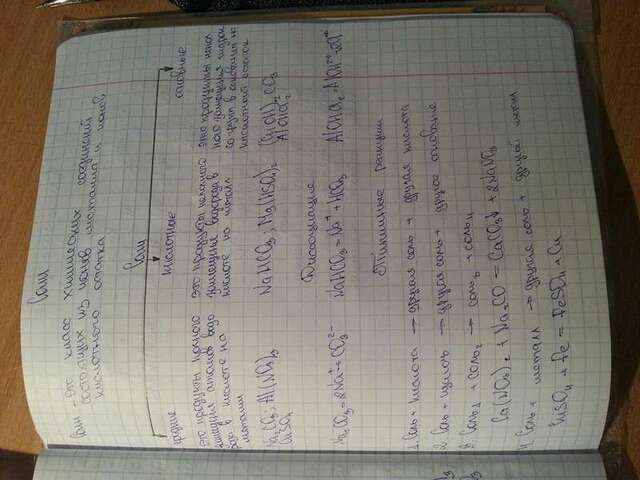 Соли
Соли - это класс химических соединений
состоящих из ионов металла и ионов
кислотного остатка
Соли
средние
это продукты полного
замещения атомов водо
рода в кислоте на
металлы
Na2CO3; Al(NO3)3
CuSO4
кислотные
это продукты неполного
замещения водорода в
кислоте на металл
NaHCO3; Mg(HSO4)2
основные
это продукты непол
ного замещения гидрок
согрупп в основании на
кислотный остаток
(CuOH)2CO3
AlOHCl2
Диссоциация
Na2CO3 = 2Na+ + CO3 2-
NaHCO3 = Na+ + HCO3
AlOHCl2 = AlOH
Типичные реакции
1. Соль + кислота → другая соль + другая кислота
2. Соль + щелочь → другая соль + другое основание
3. Соль1 + соль2 → соль3 + соль4
Ca(NO3)2 + Na2CO = CaCO3↓ + 2NaNO3
4. Соль + металл → другая соль + другой металл
CuSO4 + Fe = FeSO4 + Cu